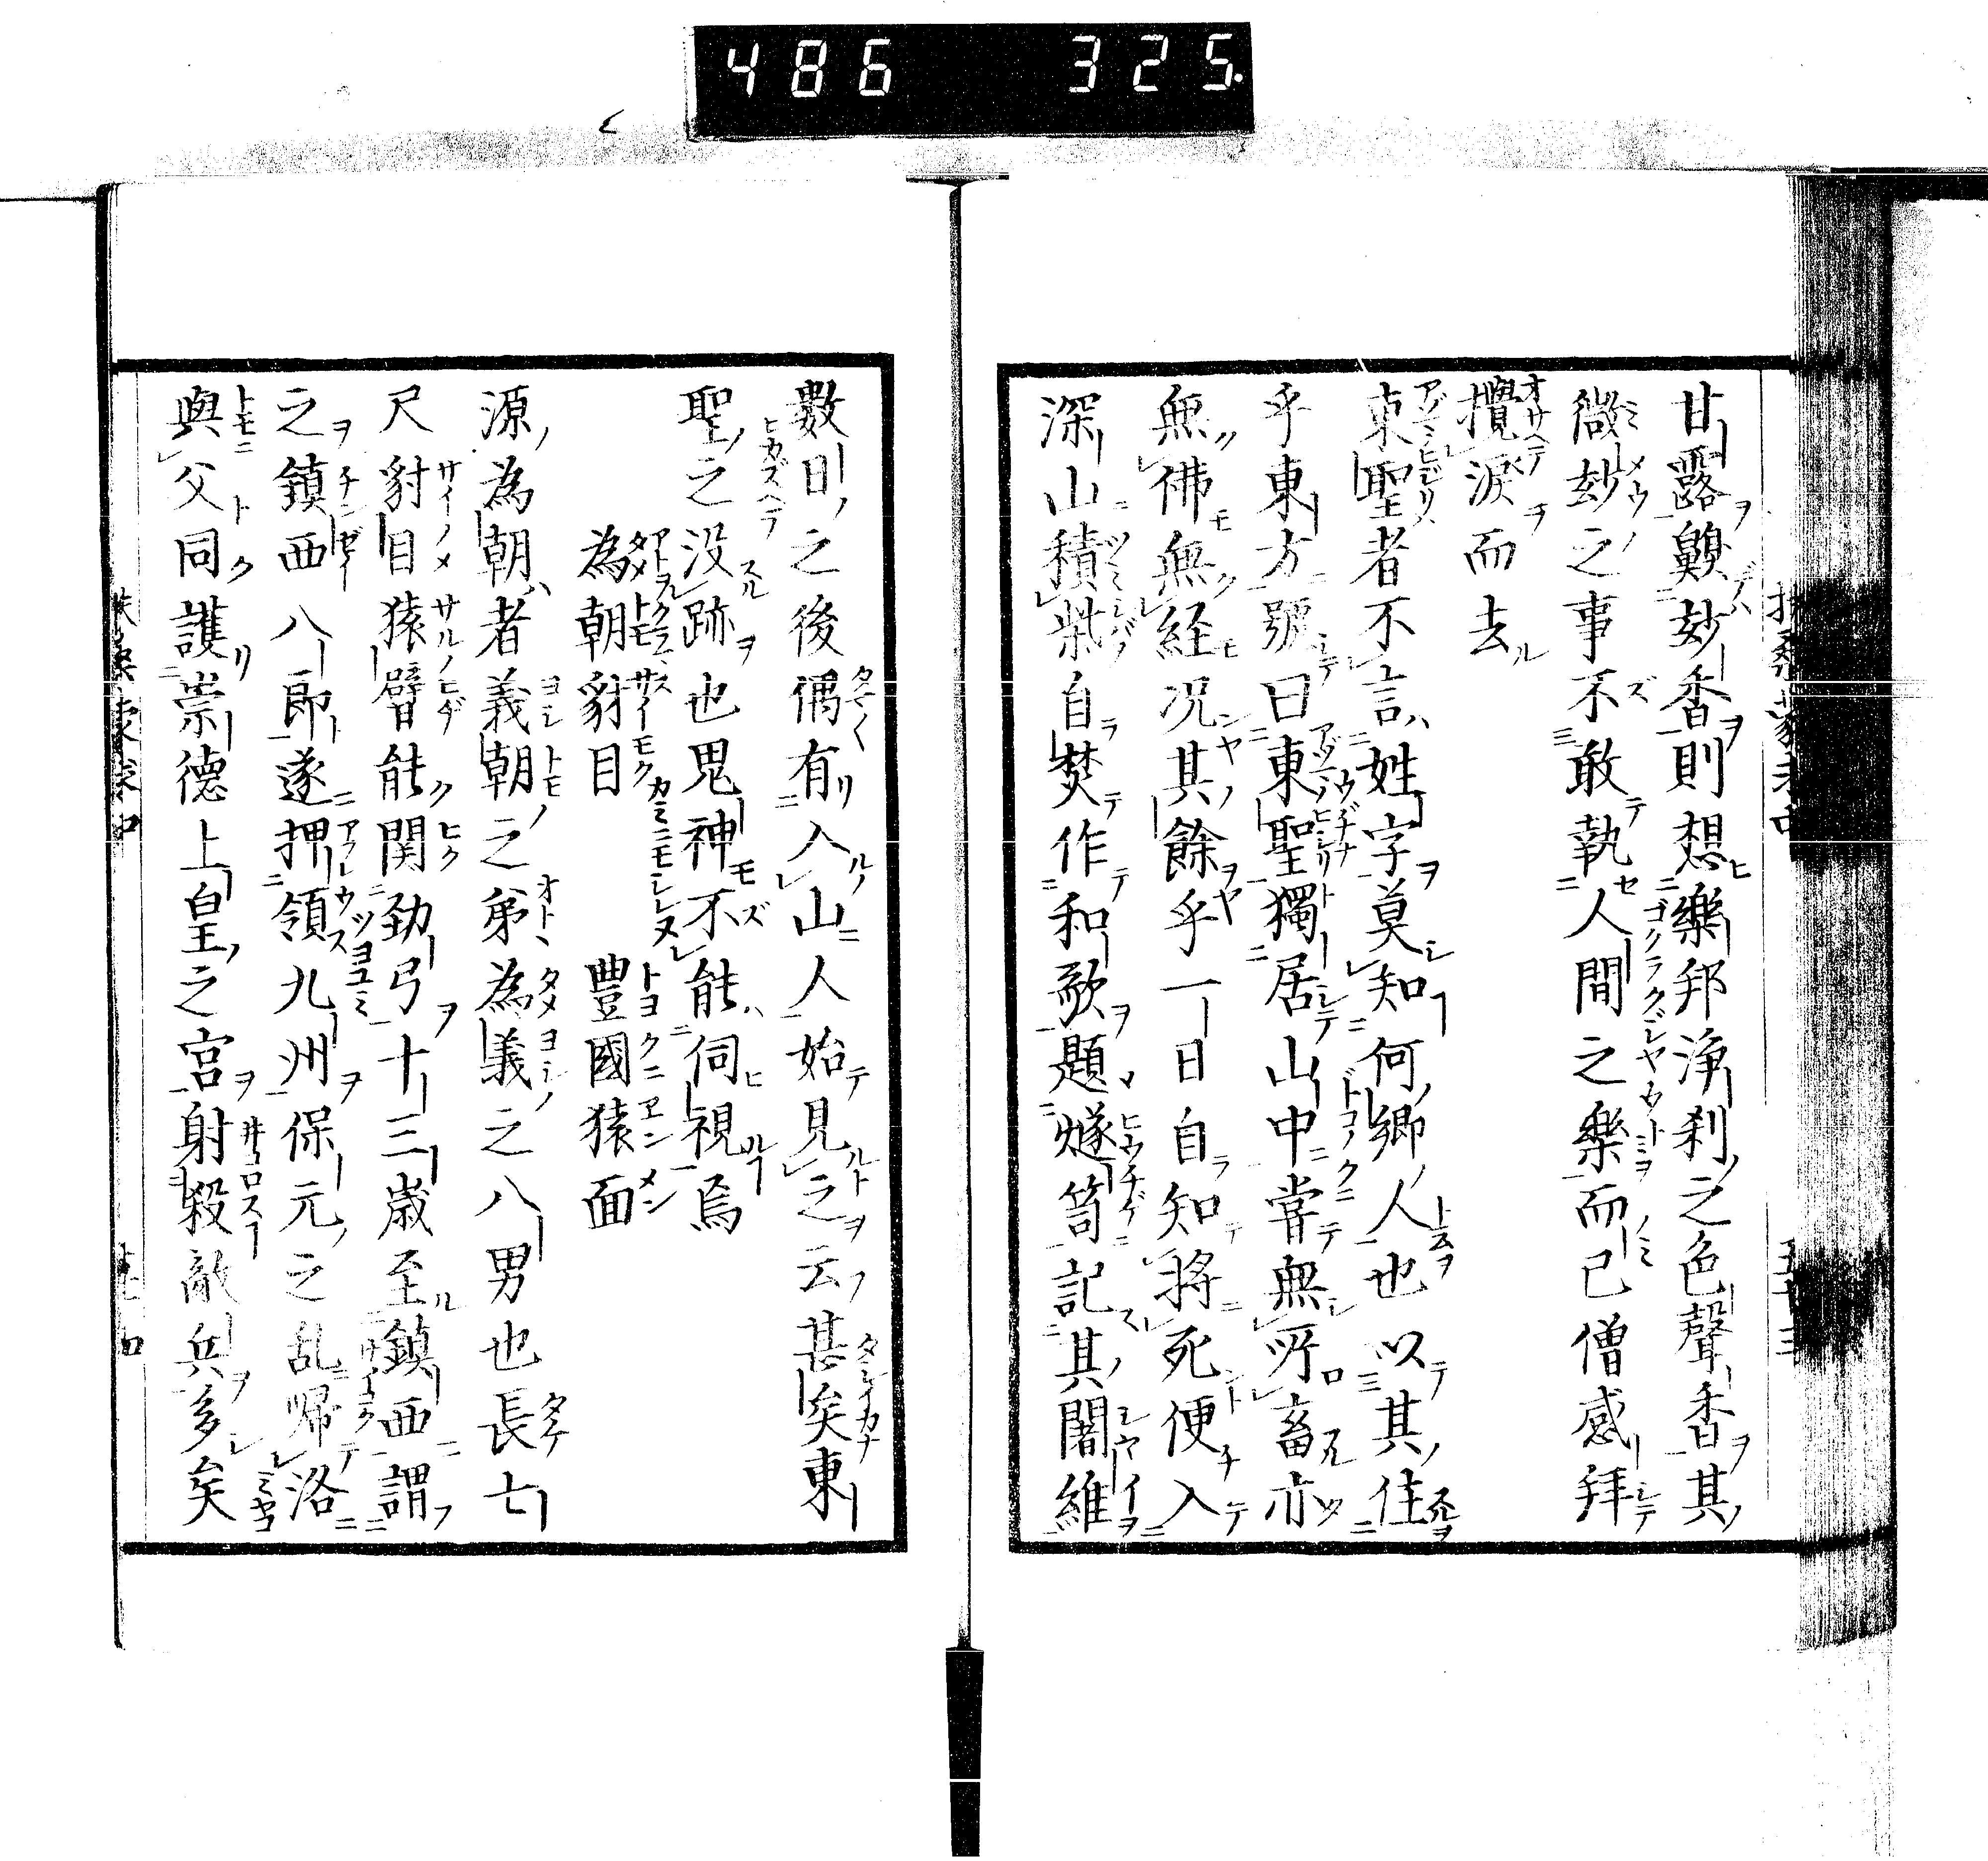 486 325.
甘露齅妙香則想樂邦淨刹之色聲香其
微玅之事不敢執人間之樂而已僧感拜
攬淚而去
東聖者不言姓字莫知何鄉人也以其住
乎東方號曰東聖獨居山中嘗無所畜亦
無佛無経况其餘乎一日自知將死便入
深山積柴自焚作和歌題燧笥記其闍維
數日之後偶有入山人始見之云甚矣東
聖之没跡也鬼神不能伺視焉
為朝豺目 豐國猿面
源為朝者義朝之弟為義之八男也長七
尺豺目猿臂能関勁弓十三歳至鎮西謂
之鎮西八郎遂押領九州保元之乱帰洛
與父同護崇德上皇之宮射殺敵兵多矣